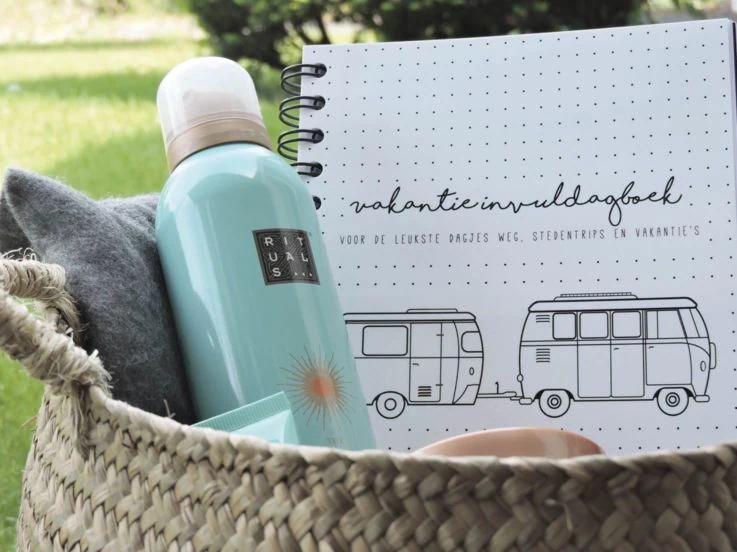 RIT
UAL
S...
vakantieinvuldagboek
VOOR DE LEUKSTE DAGJES WEG, STEDENTRIPS EN VAKANTIE'S